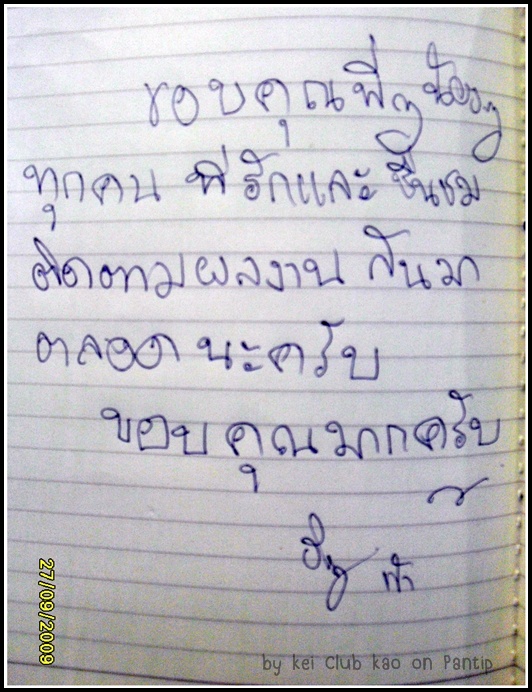 ขอบคุณพี่ๆ น้องๆ
ทุกคน ที่รักและชื่นชม
ติดตามผลงาน กันมา
ตลอด นะครับ
ขอบคุณมากครับ
27/09/2009
by kei Club kao on Pantip